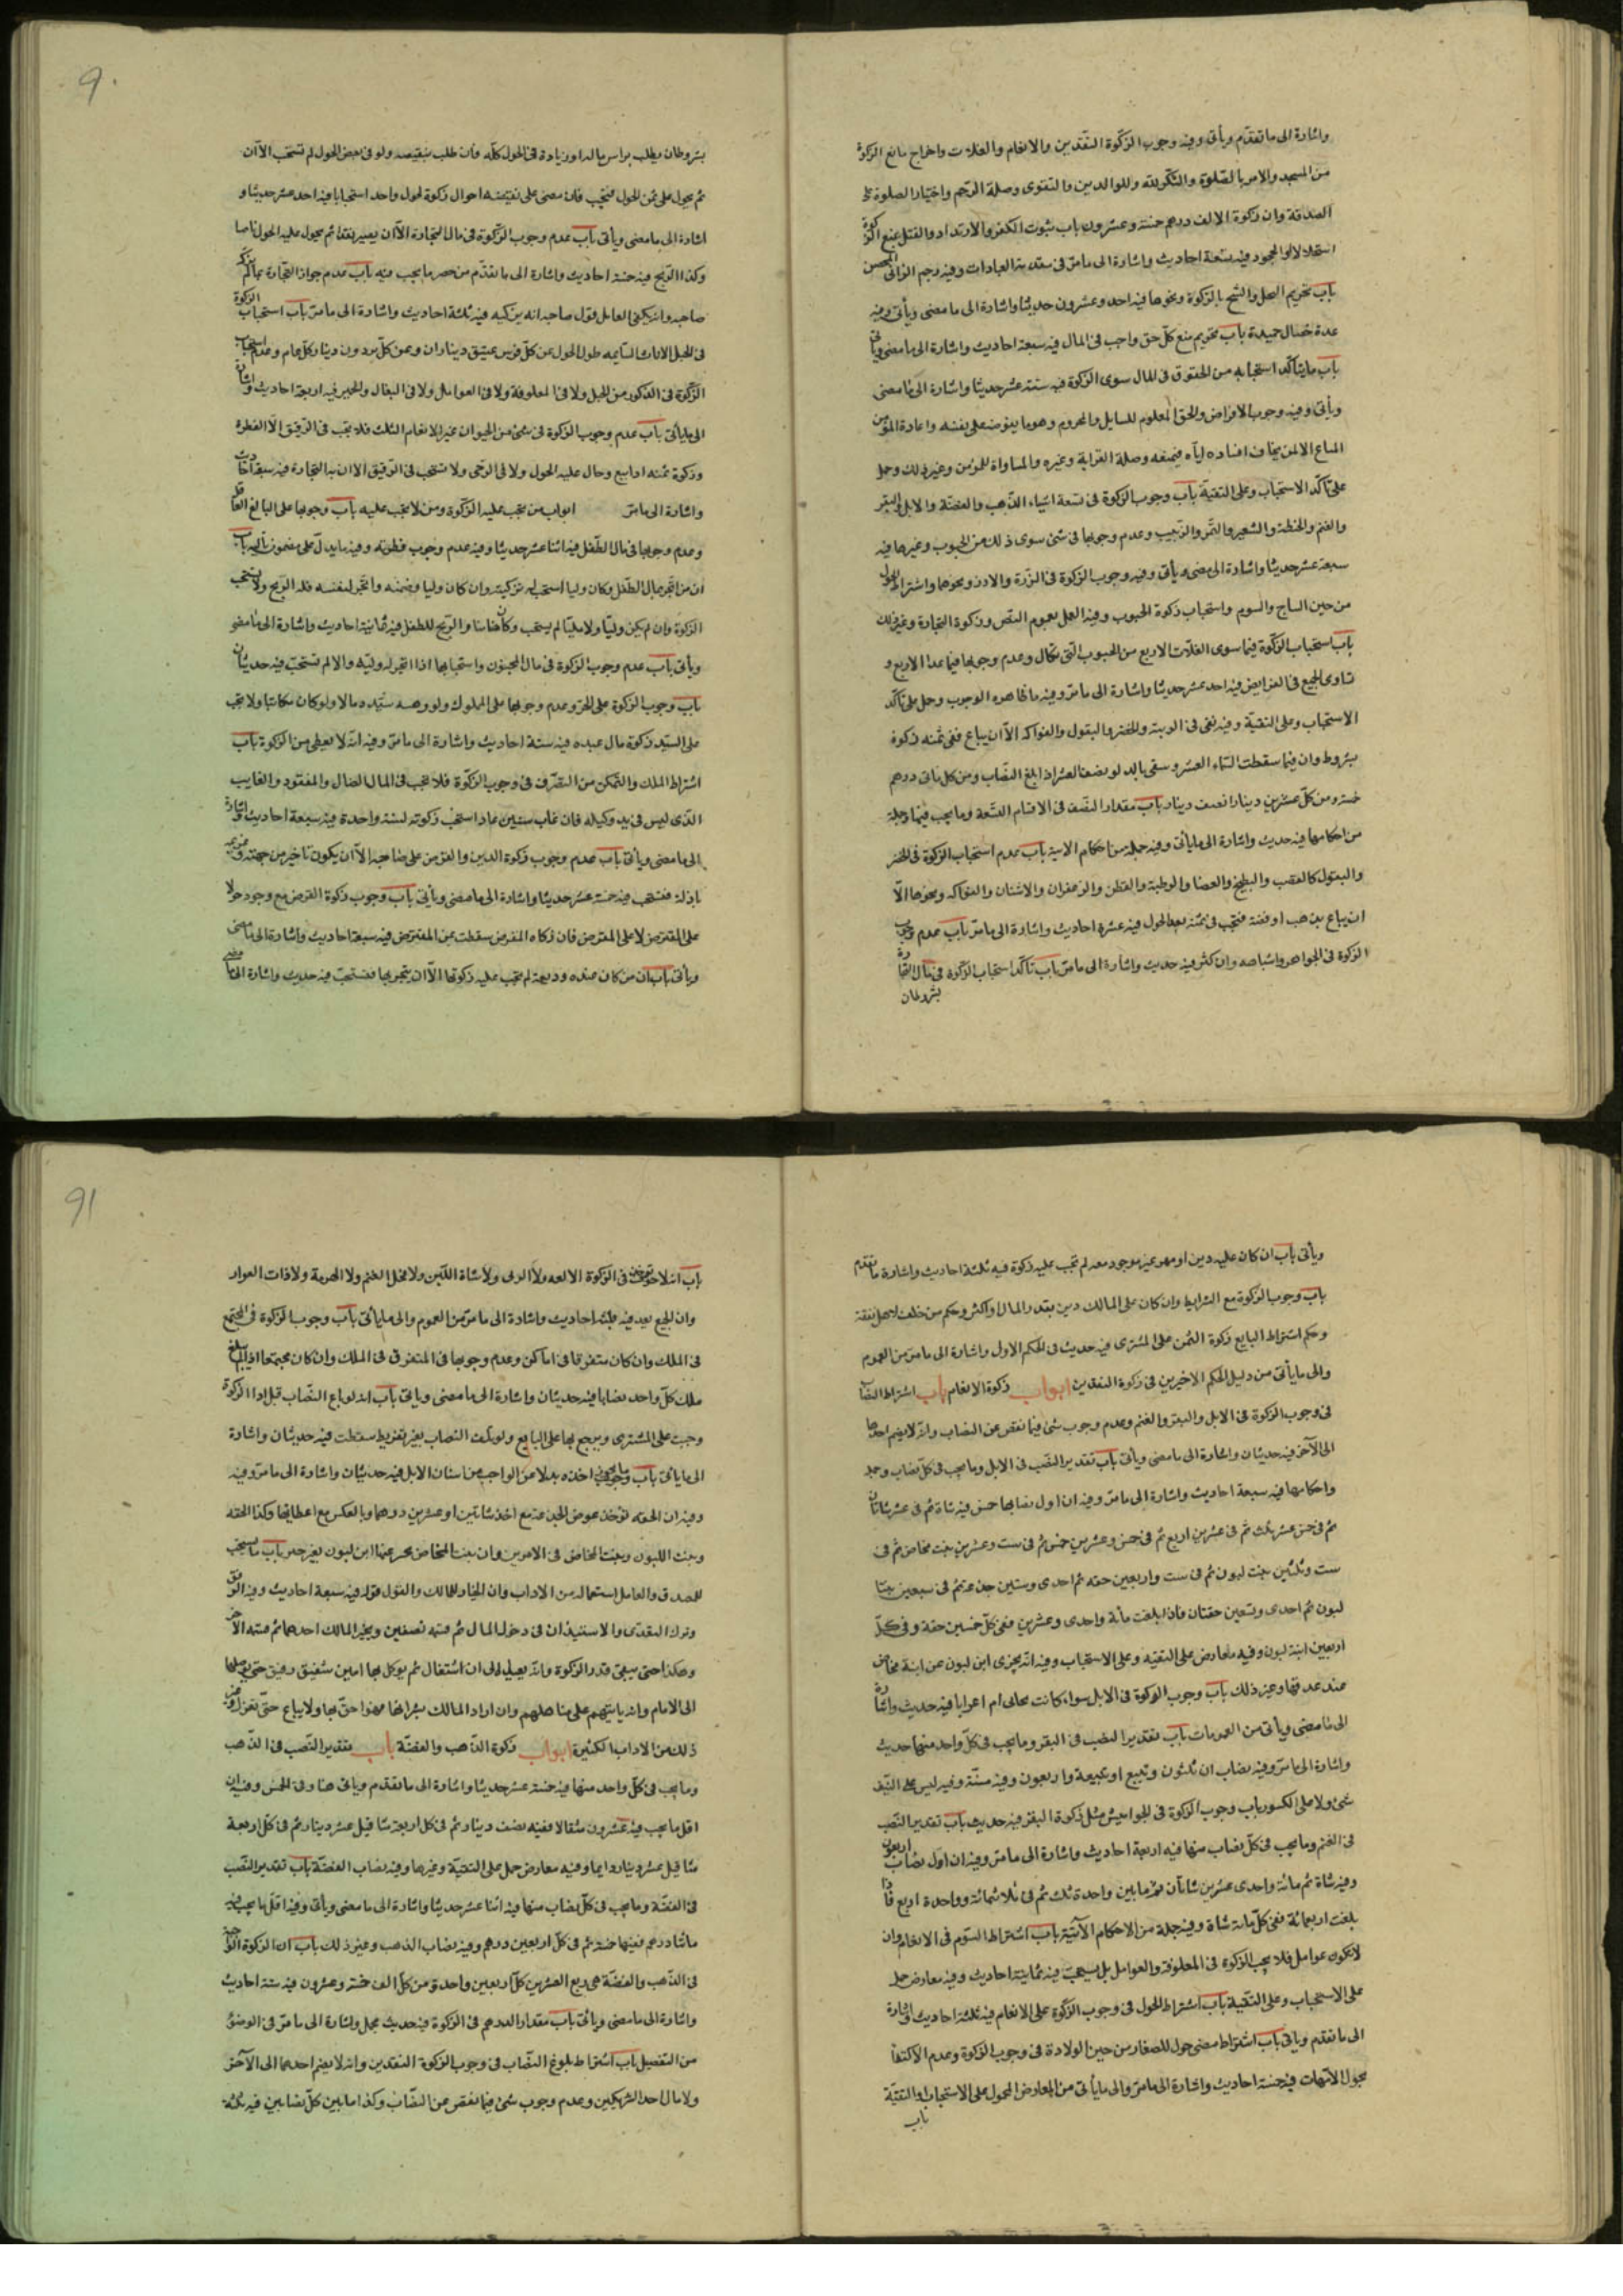 واشارة الى ما تقدّم ويأتى وفيه وجوب الزكوة النقدين والانعام والغلات واخراج مانع الزكوة
من المسجد والامر بالصلوة والتكرلله وللوالدين والتقوى وصلة الرحم واختيار الصلوة على
الصدقة وان زكوة الالف درهم خمسة وعشرون باب ثبوت الكفر والارتداد والقتل بمنع الزكوة
استحلالا او الجحود فيه تسعة احاديث واشارة الى ما مرّ فى مقدمة العبادات وفيه رجم الزانى المحصن
باب تحريم البخل والشح بالزكوة ونحوها فيه احد وعشرون حديثا واشارة الى ما مضى ويأتى وفيه
عدة خصال حميدة باب تحريم منع كل حق واجب فى المال فيه سبعة احاديث واشارة الى ما مضى ويأتى
باب ما يتأكد استحبابه من الحقوق فى المال سوى الزكوة فيه ستة عشر حديثا واشارة الى ما مضى
ويأتى وفيه وجوب الاقراض والحق المعلوم للسايل والمحروم وهو ما يفوضه على نفسه واعارة المؤمن
المتاع الا لمن يخاف افساده اياه فيمنعه وصلة القرابة وغيره والمساواة للمؤمن وغير ذلك وحمل
على تأكّد الاستحباب وعلى التقية باب وجوب الزكوة فى تسعة اشياء الذهب والفضة والابل والبقر
والغنم والحنطة والشعير والتمر والزبيب وعدم وجوبها فى شئ سوى ذلك من الحبوب وغيرها فيه
سبعة عشر حديثا واشارة الى مضى ويأتى وفيه وجوب الزكوة فى الذرة والارز ونحوها واشتراط الحول
من حين النتاج والسوم واستحباب زكوة الحبوب وفيه العمل بعموم النص وزكوة التجارة وغير ذلك
باب استحباب الزكوة فيما سوى الغلات الاربع من الحبوب التى تكال وعدم وجوبها فيما عدا الاربع و
تساوى الجميع فى الفرايض فيه احد عشر حديثا واشارة الى ما مرّ وفيه ما ظاهره الوجوب وحمل على تأكّد
الاستحباب وعلى التقية وفيه نفى فى والخضر والبقول والفواكه الا ان يباع ففى ثمنه زكوة
بشروط وان فيما سقطت السماء العشر وسقى بالدلو نصف العشر اذا بلغ النصاب ومن كل مأتى درهم
خمسة ومن كل عشرين دينارا نصف دينار باب مقدار النصف فى الاقسام التسعة وما يجب فيها وجملة
من احكامها فيه حديث واشارة الى ما يأتى وفيه جملة من احكام الاتية باب عدم استحباب الزكوة فى الخضر
والبقول كالقصب والبطيخ والعضا والرطبة والقطن والزعفران والاشنان والفواكه ونحوها الّا
ان يباع بذهب او فضة فتجب فى ثمنه بعد الحول فيه عشرة احاديث واشارة الى ما مرّ باب عدم وجوب
الزكوة فى الجواهر واشباهه وان كثر فيه حديث واشارة الى ما مرّ باب تأكّد استحباب الزكوة فى مال التجارة
بشرط ان
بشرط ان يطلب براس ماله او زيادة فى الحول كلّه فان طلب بنقيصه ولو فى بعض الحول لم تستحب الا ان
ثم يحول على ثمن الحول فتجب فان مضى على نقيصه احوال زكوة لحول واحد استحبابا فيه احد عشر حديثا و
اشارة الى ما مضى ويأتى باب عدم وجوب الزكوة فى مال التجارة الا ان يصير نقدا ثم يحول عليه الحول ناضا
وكذا الربح فيه خمسة احاديث واشارة الى ما تقدّم من حصر ما يجب فيه باب عدم جواز التجارة بمال لم يزك
صاحبه وانه يكفى العامل قول صاحبه انه يزكيه فيه ثلثة احاديث واشارة الى ما مرّ باب استحباب الزكوة
فى الخيل الاناث السايمه طول الحول عن كل فرس عتيق ديناران وعن كل برذون دينار كل عام وعدم استحباب
الزكوة فى الذكور من الخيل ولا فى المعلوفة ولا فى العوامل ولا فى البغال والحمير فيه اربعة احاديث واشارة
الى ما يأتى باب عدم وجوب الزكوة فى شئ من الحيوان غير الانعام الثلث فلا تجب فى الرقيق الا الفطرة
وزكوة ثمنه اذا بيع وحال عليه الحول ولا فى الرحى ولا تستحب فى الرقيق الا ان به التجارة فيه سبعة احاديث
واشارة الى ما مرّ ابواب من تجب عليه الزكوة ومن لا تجب عليه باب وجوبها على البالغ العاقل
وعدم وجوبها فى مال الطفل فيه اثنا عشر حديثا وفيه عدم وجوب فطرته وفيه ما يدلّ على مضمون تاليه باب
ان من اتجر بمال الطفل وكان وليا استحب له تزكيته وان كان وليا وضمنه واتجر لنفسه فله الربح ولا تستحب
الزكوة وان لم يكن وليّا ولا مليّا لم يستحب وكان ضامنا والربح للطفل فيه ثمانية احاديث واشارة الى ما مضى
ويأتى باب عدم وجوب الزكوة فى مال المجنون واستحبابها اذا اتجر له وليّه والا لم تستحب فيه حديثان
باب وجوب الزكوة على الحرّ وعدم وجوبها على المملوك ولو وهبه سيّده مالا ولو كان مكاتبا ولا تجب
على السيّد زكوة مال عبده فيه ستة احاديث واشارة الى ما مرّ وفيه انه لا يعطى من الزكوة باب
اشتراط الملك والتمكن من التصرّف فى وجوب الزكوة فلا تجب فى المال الضال والمفقود والغايب
الذى ليس فى يد وكيله فان غاب سنين ثم عاد استحب زكوته لسنة واحدة فيه سبعة احاديث واشارة
الى ما مضى ويأتى باب عدم وجوب زكوة الدين والقرض على صاحبه الا ان يكون تاخيره من جهته وغريمه
باذله فتستحب فيه خمسة عشر حديثا واشارة الى ما مضى ويأتى باب وجوب زكوة القرض مع وجوده حولا
على المقترض لا على المقرض فان زكاه المقرض سقطت عن المقترض فيه سبعة احاديث واشارة الى ما مضى
ويأتى باب ان من كان عنده وديعة لم تجب عليه زكوتها الا ان يتجر بها فتستحب فيه حديث واشارة الى ما مضى
ويأتى باب ان كان عليه دين او مهر غير موجود معه لم تجب عليه زكوة فيه ثلثة احاديث واشارة ما تقدم
باب وجوب الزكوة مع الشرايط وان كان على المالك دين بقدر المال او اكثر وحكم من خلف لاهله نفقة
وحكم اشتراط البايع زكوة الثمن على المشترى فيه حديث فى الحكم الاول واشارة الى ما مرّ من العموم
والى ما يأتى من دليل الحكم الاخيرين فى زكوة النقدين ابواب زكوة الانعام باب اشتراط النصاب
فى وجوب الزكوة فى الابل والبقر والغنم وعدم وجوب شئ فيما نقص عن النصاب وانه لا يضم احدها
الى الآخر فيه حديثان واشارة الى ما مضى ويأتى باب تقدير النصب فى الابل وما يجب فى كل نصاب وجملة
واحكامها فيه سبعة احاديث واشارة الى ما مرّ وفيه ان اول نصابها خمس فيه شاة ثم فى عشر شاتان
ثم فى خمس عشر ثلث ثم فى عشرين اربع ثم فى خمس وعشرين خمس ثم فى ست وعشرين بنت مخاض ثم فى
ست وثلثين بنت لبون ثم فى ست واربعين حقه ثم احدى وستين جذعة ثم فى سبعين بنتا
لبون ثم احدى وتسعين حقتان فاذا بلغت مأة واحدى وعشرين ففى كل خمسين حقة وفى كلّ
اربعين ابنة لبون وفيه معارض على التقيه وعلى الاستحباب وفيه انه يجزى ابن لبون عن ابنة مخاض
عند عدمها وغير ذلك باب وجوب الزكوة فى الابل سواء كانت بخاتى ام اعرابا فيه حديث واشارة
الى ما مضى ويأتى من العمومات باب تقدير النصب فى البقر وما يجب فى كل واحد منها حديث
واشارة الى ما مرّ وفيه نصاب ان ثلثون وتبيع او تبيعة واربعون وفيه مسنّة وفيه ليس على النيّف
شئ ولا على الكسور باب وجوب الزكوة فى الجواميس مثل زكوة البقر فيه حديث باب تقدير النصب
فى الغنم وما يجب فى كل نصاب منها فيه اربعة احاديث واشارة الى ما مرّ وفيه ان اول نصاب اربعون
وفيه شاة ثم مائة واحدى عشرين شاتان ثم مابين واحدة ثلث ثم فى ثلاثمائة وواحدة اربع فاذا
بلغت اربعمائة ففى كل مائة شاة وفيه جملة من الاحكام الآتية باب اشتراط السوم فى الانعام وان
لا تكون عوامل فلا تجب الزكوة فى المعلوفة والعوامل بل يستحب فيه ثمانية احاديث وفيه معارض حمل
على الاستحباب وعلى التقية باب اشتراط الحول فى وجوب الزكوة على الانعام فيه ثلثة احاديث واشارة
الى ما تقدم وياتى باب اشتراط مضى حول للصغار من حين الولادة فى وجوب الزكوة وعدم الاكتفاء
بحول الامهات فيه خمسة احاديث واشارة الى ما مرّ والى ما يأتى من المعارض المحمول على الاستحباب او التقية
باب
باب انه لا تؤخذ فى الزكوة ولا الربى ولا شاة اللبن ولا فحل الغنم ولا الهرمة ولا ذات العوار
وان الجميع يعد فيه ثلثة احاديث واشارة الى ما مرّ من العموم والى ما يأتى باب وجوب الزكوة فى المجتمع
فى الملك وان كان متفرقا فى اماكن وعدم وجوبها فى المتفرق فى الملك وان كان مجتمعا اذا لم يبلغ
ملك كل واحد نصابا فيه حديثان واشارة الى ما مضى وياتى باب انه لو باع النصاب قبل ادا الزكوة
وجبت على المشترى ويرجع بها على البايع ولو تلف النصاب بغير تفريط سقطت فيه حديثان واشارة
الى ما يأتى باب ما يجوز اخذه بدلا من الواجب من اسنان الابل فيه حديثان واشارة الى ما مرّ وفيه
وفيه ان الحقه تؤخذ عوض الجذعة مع اخذ شاتين او عشرين درهما وبالعكس مع اعطائها وكذا الحقه
وبنت اللبون وبنت المخاض فى الامرين وان بنت المخاض يجزى عنها ابن لبون بغير جبر باب ما يستحب
للمصدق والعامل استعماله من الاداب وان الخيار للمالك والقول قوله فيه سبعة احاديث وفيه الرفق
وترك التعدى والاستيذان فى دخول المال ثم قسمته نصفين ويخير المالك احدهما ثم قسمة الآخر
وهكذا حتى يبقى قدر الزكوة وانه يقيله الى ان استقال ثم يوكل بها امين شفيق رفيق حتى يوصلها
الى الامام وانه ياتيهم على مناهلهم وان اراد المالك شراءها فهو احق بها ولا يباع حتى تعزل وغير
ذلك من الاداب الكثيرة ابواب زكوة الذهب والفضة باب تقدير النصب فى الذهب
وما يجب فى كل واحد منها فيه خمسة عشر حديثا واشارة الى ما تقدم وياتى هنا وفى الخمس وفيه ان
اقل ما يجب فيه عشرون مثقالا ففيه نصف دينار ثم فى كل اربعة مثاقيل عشر دينار ثم فى كل اربعة
مثاقيل عشر دينار دايما وفيه معارض حمل على التقية وغيرها وفيه نصاب الفضة باب تقدير النصب
فى الفضة وما يجب فى كل نصاب منها فيه اثنا عشر حديثا واشارة الى ما مضى ويأتى وفيه اقل ما يجب فيه
مائتا درهم ففيها خمسة ثم فى كل اربعين درهم وفيه نصاب الذهب وغير ذلك باب ان الزكوة الواجبة
فى الذهب والفضة هى ربع العشر من كل اربعين واحدة ومن كل الف خمسة وعشرون فيه ستة احاديث
واشارة الى ما مضى ويأتى باب مقدار الدرهم فى الزكوة فيه حديث مجمل واشارة الى ما مرّ فى الوضوء
من التفصيل باب اشتراط بلوغ النصاب فى وجوب الزكوة النقدين وانه لا يضم احدهما الى الآخر
ولا مال احد الشريكين وعدم وجوب شئ فيما نقص عن النصاب وكذا ما بين كل نصابين فيه ثلثة